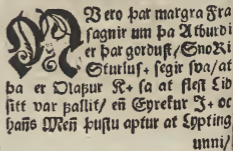 NVero þar margra Fra
sagnir um þa Atburdi
er þar gorduſt / SnoRi
Sturluſ+ ſegir ſva / at
þa er Olafur K+ ſa at fleſt Lid
ſitt var fallit / eñ Eyrekur J+ oc
hañs Meñ þuſtu aptur at Lypting
unni /